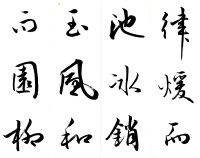 律煖而
池冰銷
玉風和
而園柳